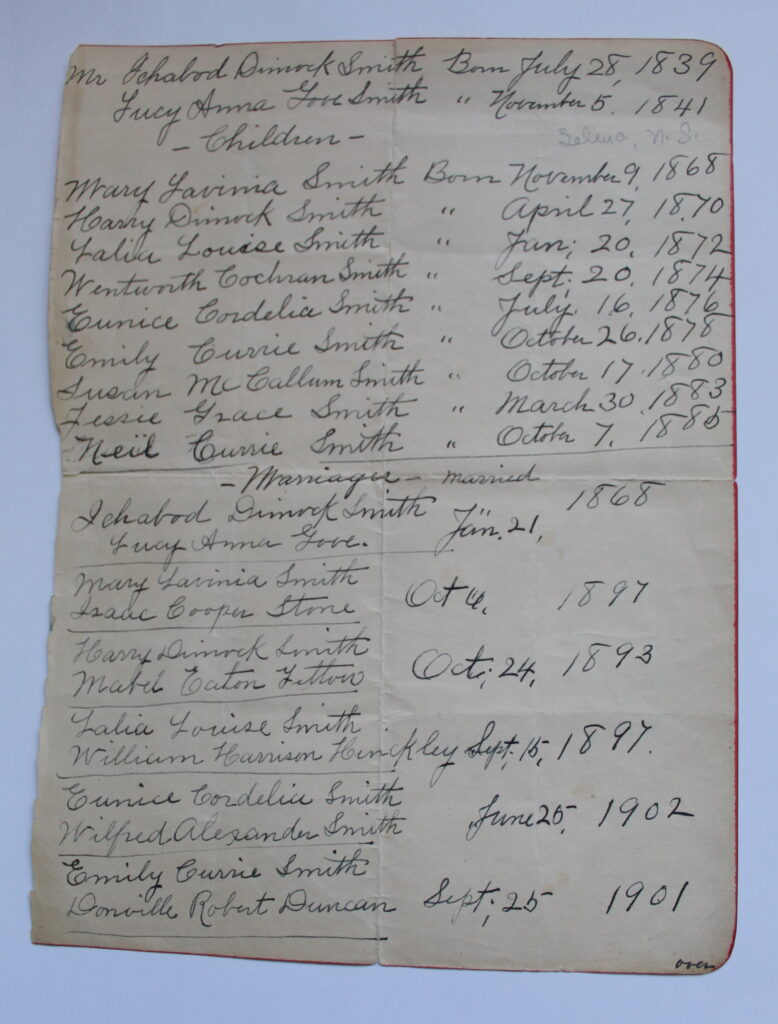 Mr Ichabod Dimock Smith Born July 28, 1839
Lucy Anna Gove Smith " November 5, 1841
- Children -
Selma, N.S.
Mary Lavinia Smith Born November 9, 1868
Harry Dimock Smith " April 27, 1870
Lalia Louise Smith " Jan; 20, 1872
Wentworth Cochran Smith " Sept; 20, 1874
Eunice Cordelia Smith " July. 16, 1876
Emily Currie Smith " October 26, 1878
Susan McCallum Smith " October 17, 1880
Jessie Grace Smith " March 30, 1883
Neil Currie Smith " October 7, 1885
- Marriages - married
Ichabod Dimock Smith " 1868
Lucy Anna Gove. Jan, 21,
Mary Lavinia Smith
Isaac Cooper Stone Oct 1897
Harry Dimock Smith
Mabel Eaton Oct; 24, 1893
Lalia Louise Smith
William Harrison Hinckley Sept, 15, 1897.
Eunice Cordelia Smith
Wilfred Alexander Smith June 25, 1902
Emily Currie Smith
Donville Robert Duncan Sept; 25 1901
over